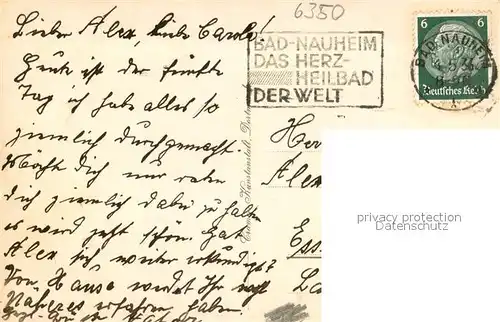 6350
Lieber Alex, liebe Carola!
Heute ist der fünfte
Tag ich habe alles so
ziemlich durchgemacht.
Möcht Dich nur raten
dich ziemlich dabei zu halten
es wird jetzt schön. Hat
Alex sich weiter erkundigt?
Von Hause werdet Ihr wohl
Näheres erfahren haben.
BAD-NAUHEIM
DAS HERZ-
HEILBAD
DER WELT
6 6
BAD-NAUHEIM
Deutsches Reich
Her
Alex
Ess
privacy protection
Datenschutz